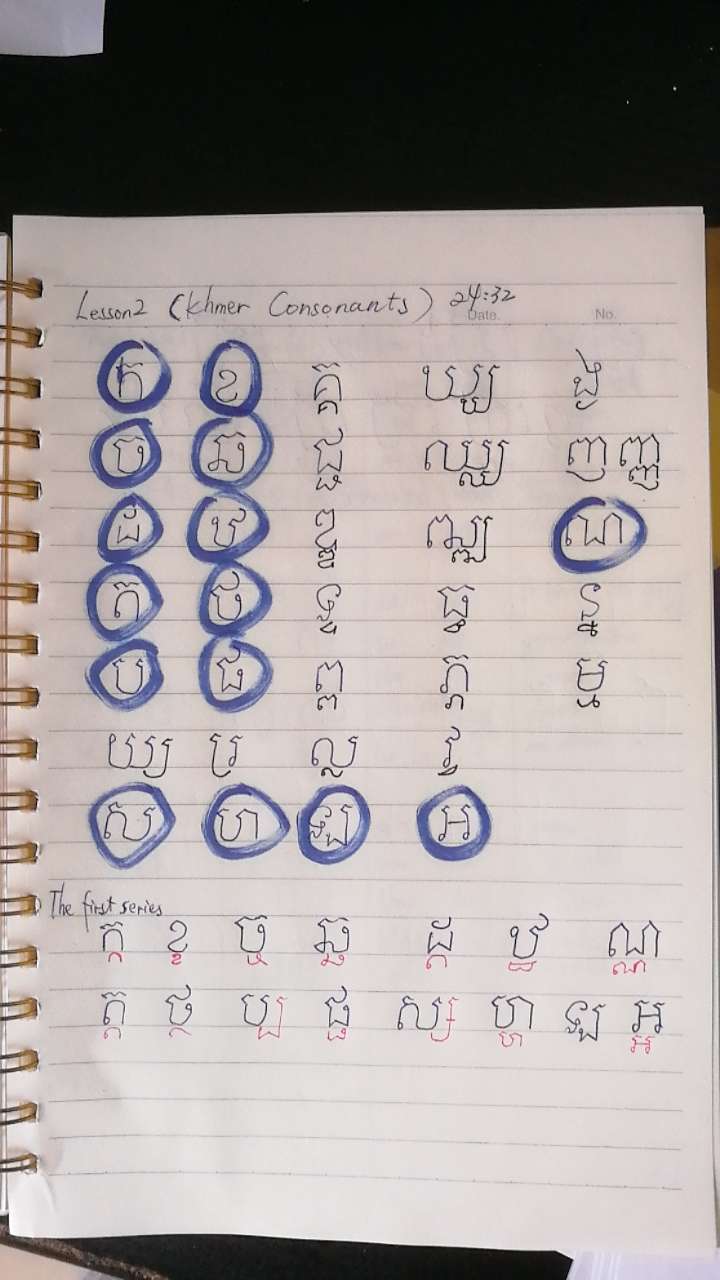 Lesson2 (Khmer Consonants) 24:32
Date. No.
ក ខ គ្គ ឃ្ឃ ង្ង
ច ឆ ជ្ជ ឈ្ឈ ញ ញ្ញ
ដ ឋ ឌ្ឌ ឍ្ឍ ណ
ត ថ ទ្ទ ធ្ធ ន្ន
ប ផ ព្ព ភ្ភ ម្ម
យ្យ រ្រ ល្ល វ្វ
ស ហ ឡ អ
The first series
ក្ក ខ្ខ ច្ច ឆ្ឆ ដ្ដ ឋ្ឋ ណ្ណ
ត្ត ថ្ថ ប្ប ផ្ផ ស្ស ហ្ហ ឡ អ្អ